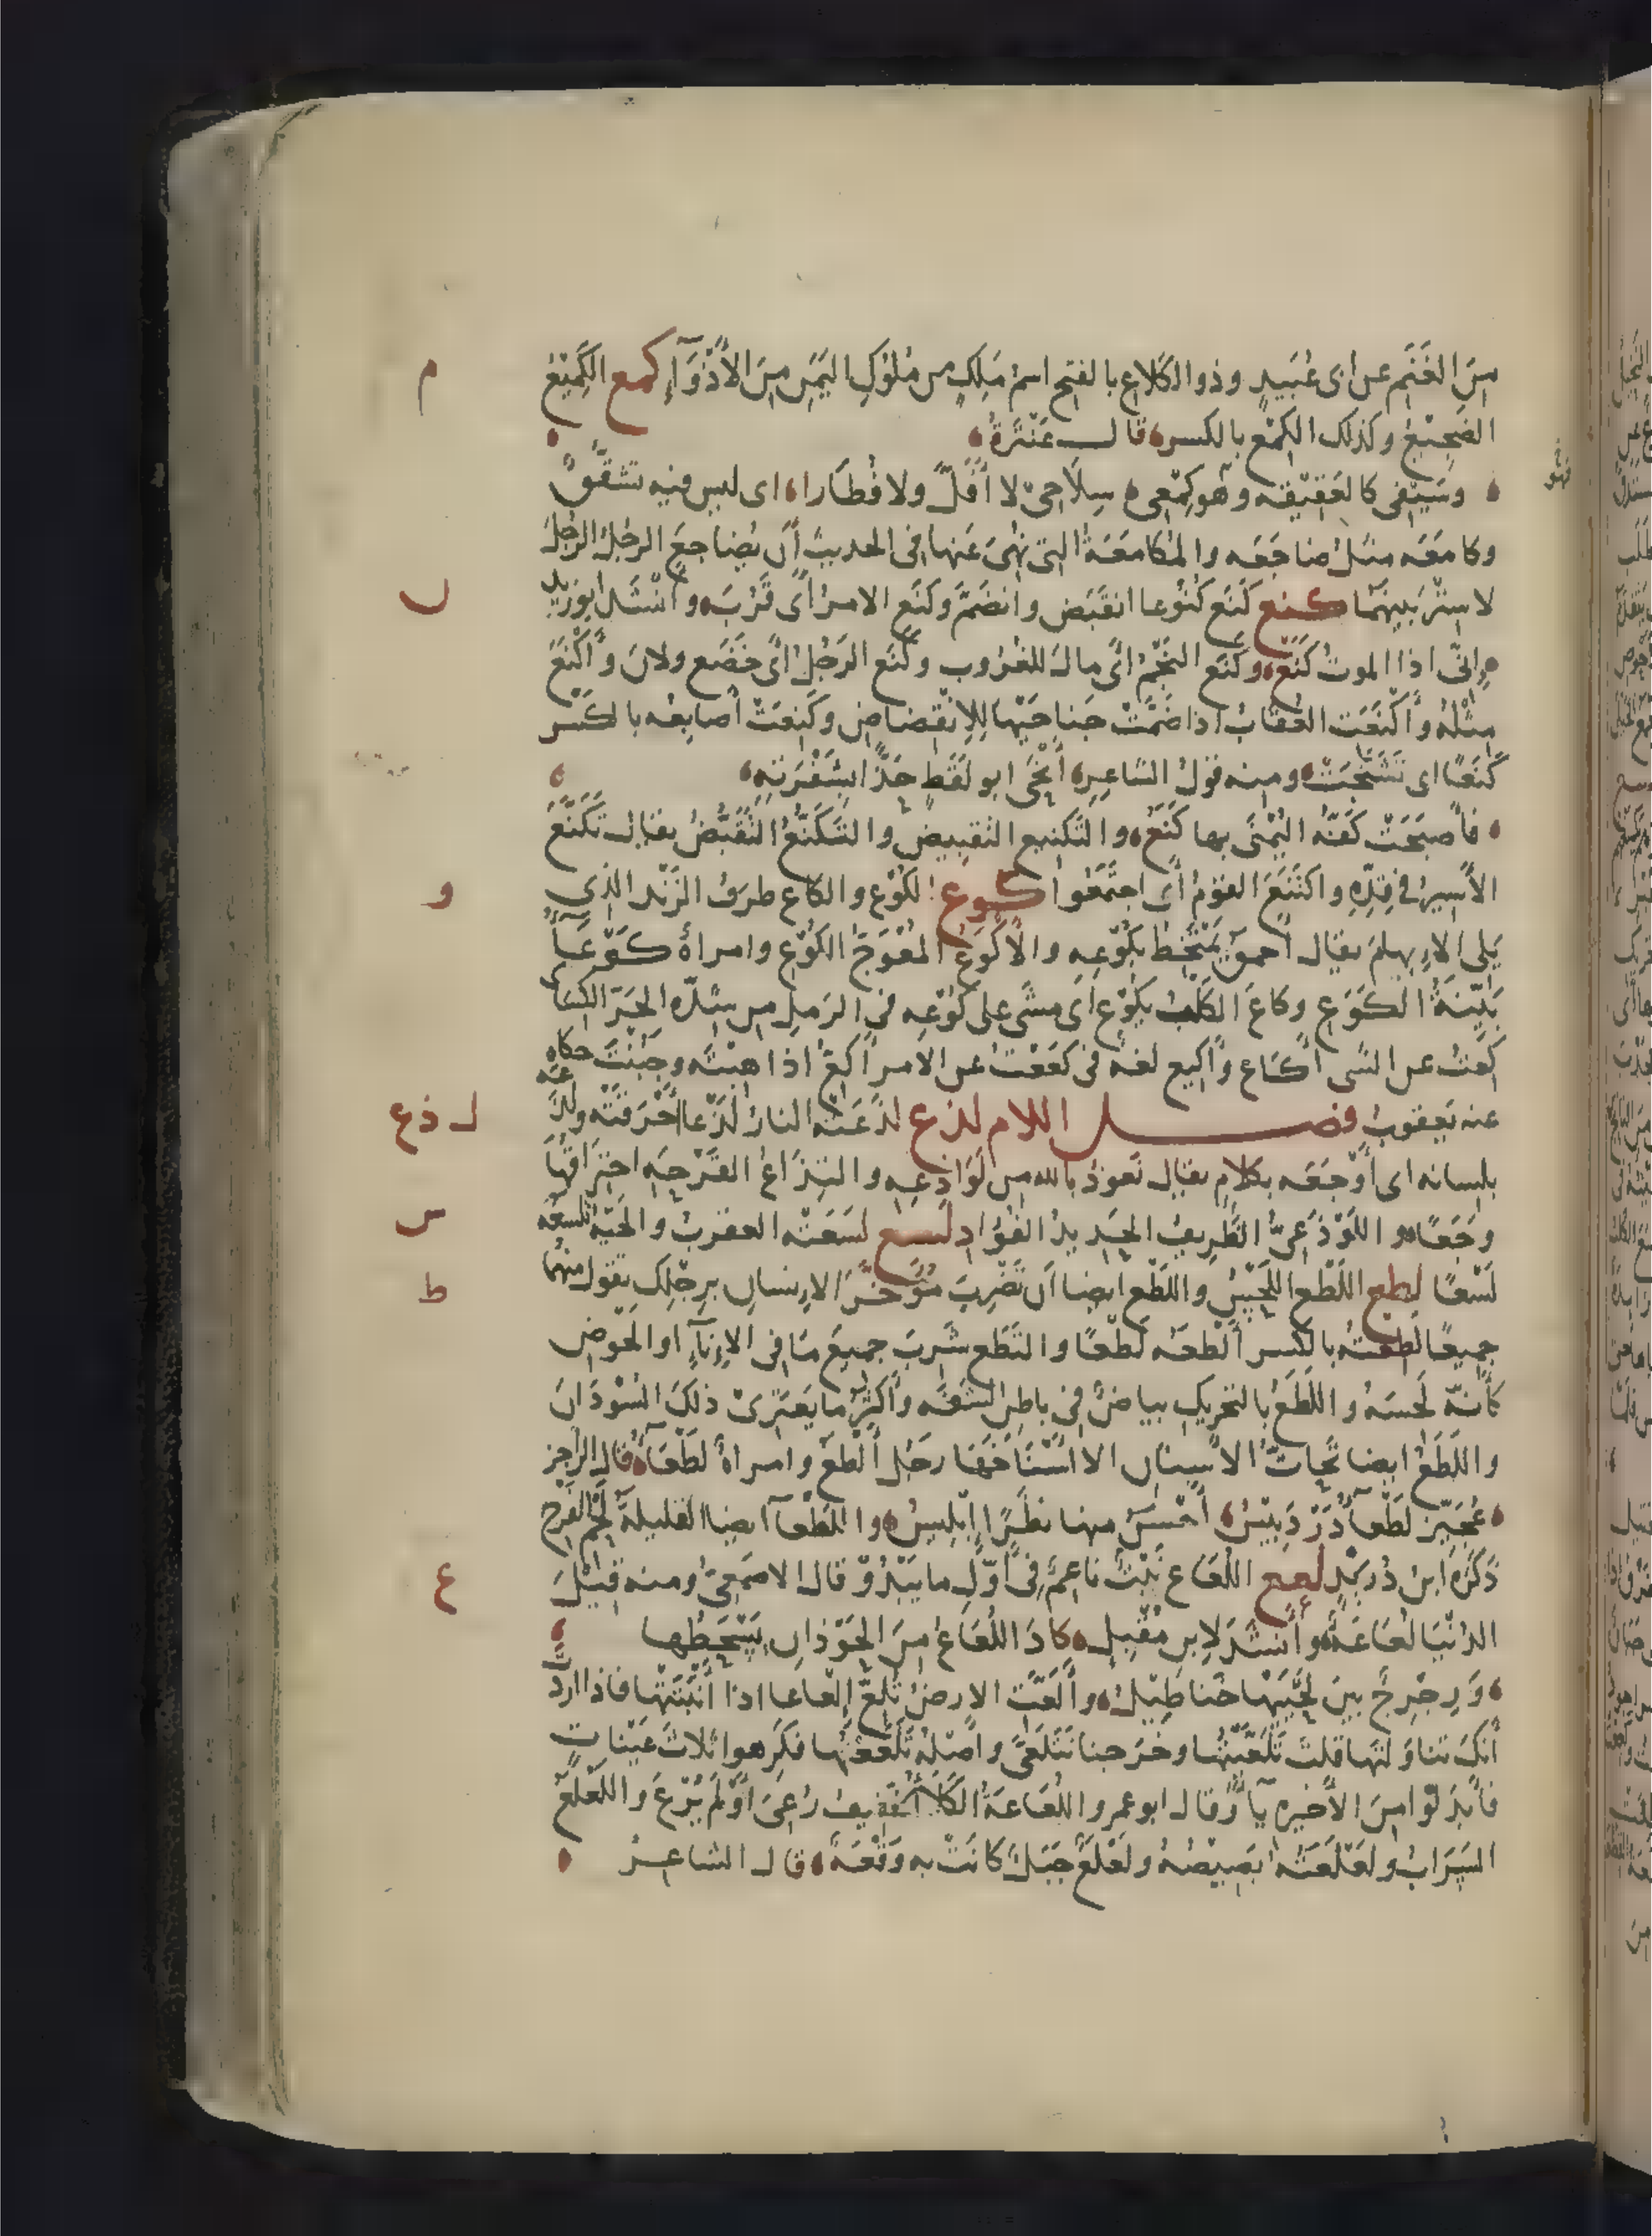 مِنَ الغَنَمِ عن ابى عُبَيدٍ وذو الكَلاعِ بالفتح اسمُ مَلِكٍ من مُلُوكِ اليَمَنِ مِنَ الأَذْوَآءِ كمع الكَمِيْعُ م
الضَجِيْعُ وكذلك الكِمْعُ بالكسر قالـــ عَنْتَرَةُ
وسَيْفى كالعَقِيْقه وهو كِمْعِى سِلَاحِىْ لا أَفَلَّ ولا فُطَارا اى ليس فيه تَشَقُّقٌ
وكامَعَه مثلُ ضاجَعَه والمُكامَعَةُ التى نُهِىَ عَنها فى الحديث أن يُضاجِعَ الرجُلُ الرجُلَ
لا سِتْرَ بينهما كنع كَنَع كُنُوعا انقَبَض وانضَمَّ وكَنَع الامرُ أَى قَرُبَ وأَنْشَدَ ابوزيد ن
اِنّى اذا الموتُ كَنَعْ وكَنَع النَجْمُ اَى مالَ للغُروب وكَنَع الرَجُلُ اَى خَضَع ولانَ وأَكْنَعَ
مِثْلُه وأَكْنَعَت العُقَابُ اذا ضَمَّتْ جَناحَيْها لِلاِنْقِضاضِ وكَنِعَتْ أصابِعُه بالكَسر
كَنَعًا اى تَشَنَّجَتْ ومنه قولُ الشاعِرِ أَنْحَى ابو لَقَطٍ حَزًّا بِشَفْرَتِهِ
فأصبَحَتْ كَفُّهُ اليُمْنَى بها كَنَعُ والتَكنيع التَقبيض والتَكَنُّعُ التَقَبُّضُ يقال تَكَنَّعَ
الأَسِيرُ فى قِدِّهِ واكتَنَعَ القومُ أى اجتَمَعُوا كوع الكُوْع والكاع طرفُ الزَنْد الذى و
يَلى الاِبهامَ يقال احمقُ يَمْتَخِطُ بكُوْعِه والأَكْوَعُ المُعْوَجُّ الكُوْعِ وامرأة كَوْعَآءُ
بَيِّنَةُ الكَوَعِ وكاعَ الكَلْبُ يَكُوْع اَى مشَى على كُوْعِه فى الرَملِ مِن شِدّه الحَرّ الكسائى
كِعْتُ عن الشى أكَاع وأَكِيع لغه فى كَعَعْتُ عن الامر أَكِعُّ اذا هِبْتَه وجَبُنْتَ حكاه عنه
عنه يَعقوب فصـــــل اللام لذع لَذَعَتْه النارُ لَذْعا أَحْرَقَتْه ولذَعَه لـ ذع
بلسانه اى أَوْجَعَه بكلامٍ يقال نَعوذُ بالله من لَوَاذِعِه والتِذَاعُ القَرْحِهِ احتِرَاقُها
وَجَعًا واللَوْذَعِىُّ الظَرِيفُ الحَدِيدُ الفُؤَادِ لسع لَسَعَتْه العقربُ والحَيَّةُ تلسعه س
لَسْعًا لطع اللَطْع اللَحْسُ واللَطْع ايضا اَن تَضْرِبَ مُؤَخَّرَ الاِنسانِ بِرِجْلِكَ تقول منهما ط
جميعًا لَطِعتُه بالكسر أَلْطَعُه لَطْعًا والتَطَع شَرِبَ جميعَ مَا فى الاِنآءِ او الحَوْضِ
كأنَّه لَحِسَهُ واللَطَعُ بالتحريك بياضٌ فى باطِن الشَفَه وأكثَرُ ما يَعْتَرِىْ ذلكَ السُوْدَانَ
واللَطَعُ ايضا تَحاتُّ الأسنان الا أَسْنَاخَها رَجُلٌ أَلْطَعُ وامرأةٌ لَطْعَآءُ قال الراجز
عُجَيِّزٌ لَطْعَآءُ دَرْدَبِيْسُ أَحْسَنُ منها مَنظَرًا اِبْلِيسُ واللَطْعَآءُ ايضا القليلةُ لَحْمِ الفَرْج
ذَكَرَه ابنُ دُرَيدٍ لعع اللُعَاع نَبْتٌ ناعِمٌ فى أوَّلِ ما يَبْدُوْ قال الاصمَعِىُّ ومنه قِيْلَ ع
الدُنْيَا لُعَاعَةٌ وأَنشَدَ لابن مُقْبِلٍ كادَ اللُعَاعُ مِنَ الحَوْذانِ يَسْحَطُها
وَرِجْرِجٌ بينَ لَحْيَيْها خَناطِيْلُ وأَلَعَّتِ الارضُ تُلِعُّ اِلعاعا اذا أَنْبَتَتْها فاذا اردتَّ
أنكَ تناوَلتَها قلتَ تَلَعَّيْتُها وخَرَجنا نَتَلَعَّى وأصْلُهُ تَلَعَّعْتُها فكَرِهوا ثلاثَ عَيْناتٍ
فأَبدَلوا مِنَ الأَخيره يآءً وقال ابوعمرو اللُعَاعَةُ الكَلأُ الخفيف رُعِىَ أَوْ لَمْ يُرْعَ واللَعْلَعُ
السَرَابُ ولَعْلَعَتُه بَصِيْصُه ولَعْلَعٌ جَبَلٌ كانَتْ به وَقْعَةٌ قالـ الشاعِرُ